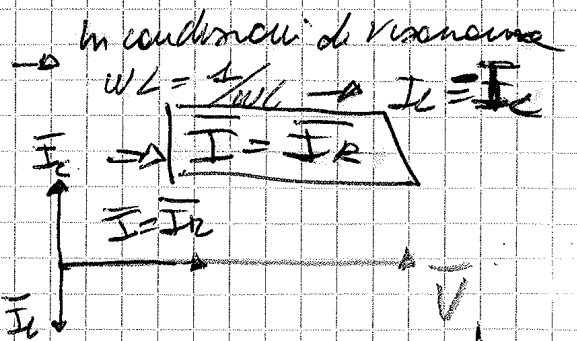 → In condizioni di risonanza
ωL = 1/ωC → I_L = I_C
⇒ I̅ = I̅_R
I̅_C
I̅ = I̅_R
V̅
I̅_L